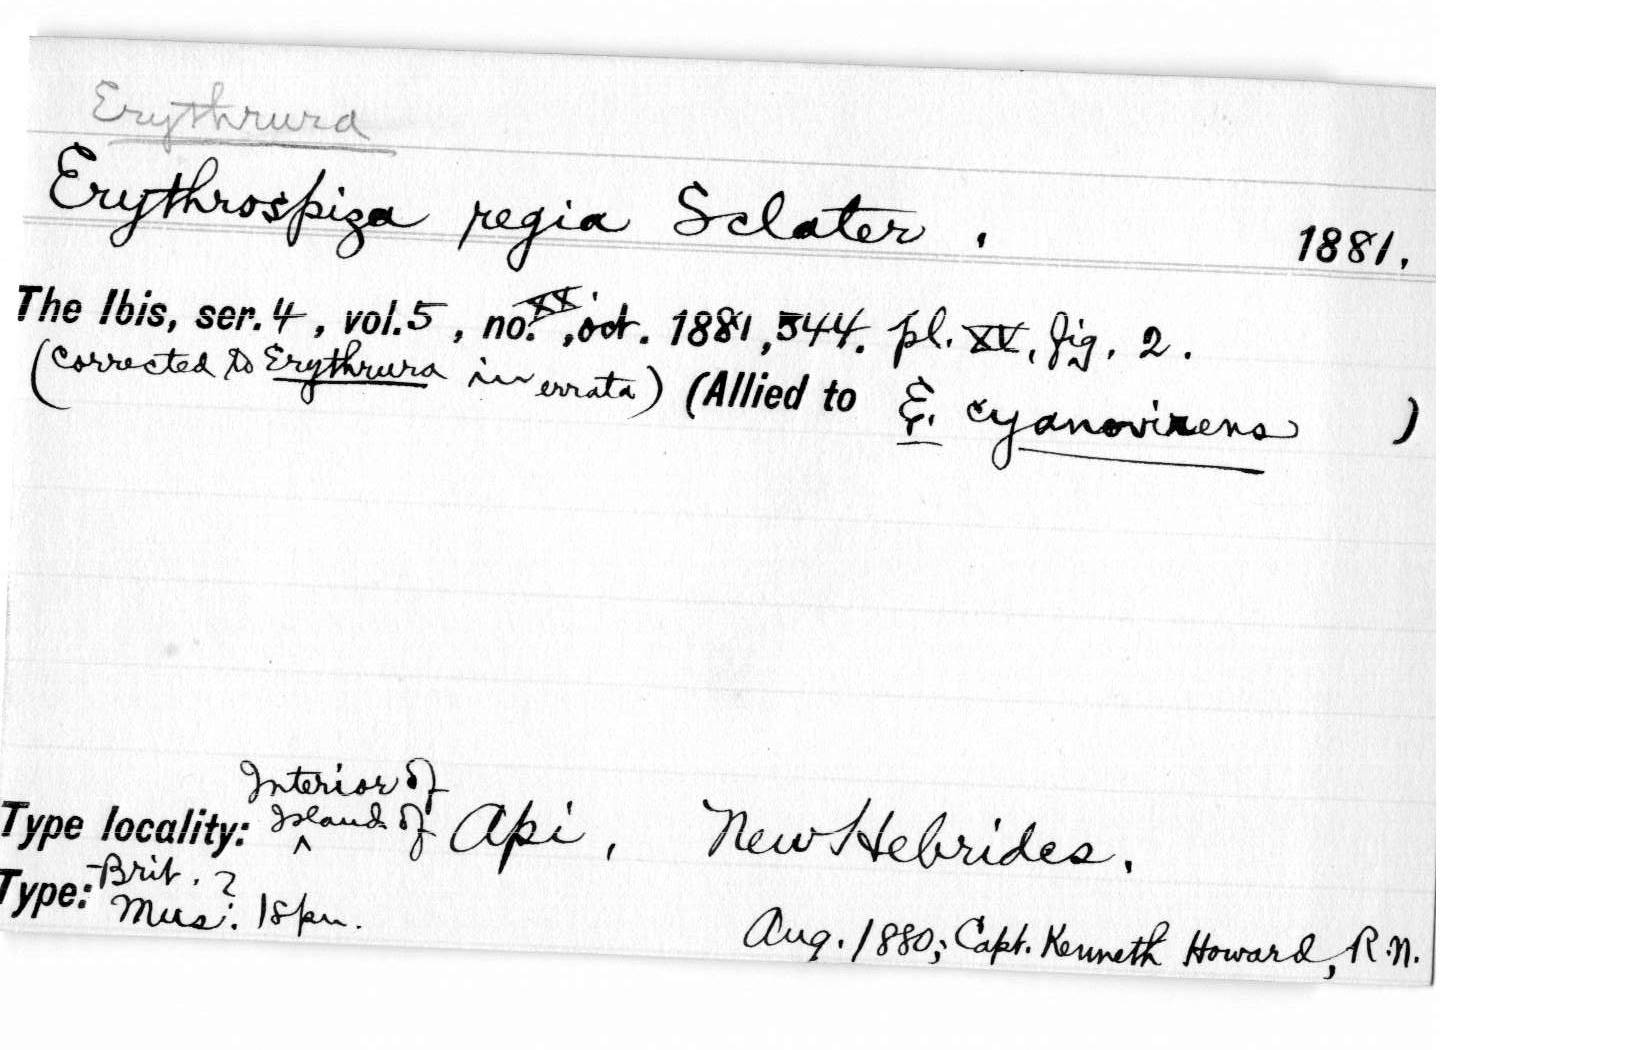 Erythrura
Erythrospiza regia Sclater. 1881.
The Ibis, ser.4, vol.5, no.XX., oct. 1881, 544. pl. XV, fig. 2.
(corrected to Erythrura in errata) (Allied to E. cyanovirens )
Interior of
Type locality: Island of Api, New Hebrides.
Type: Brit. Mus.? 1 spn.
Aug. 1880; Capt. Kenneth Howard, R.N.